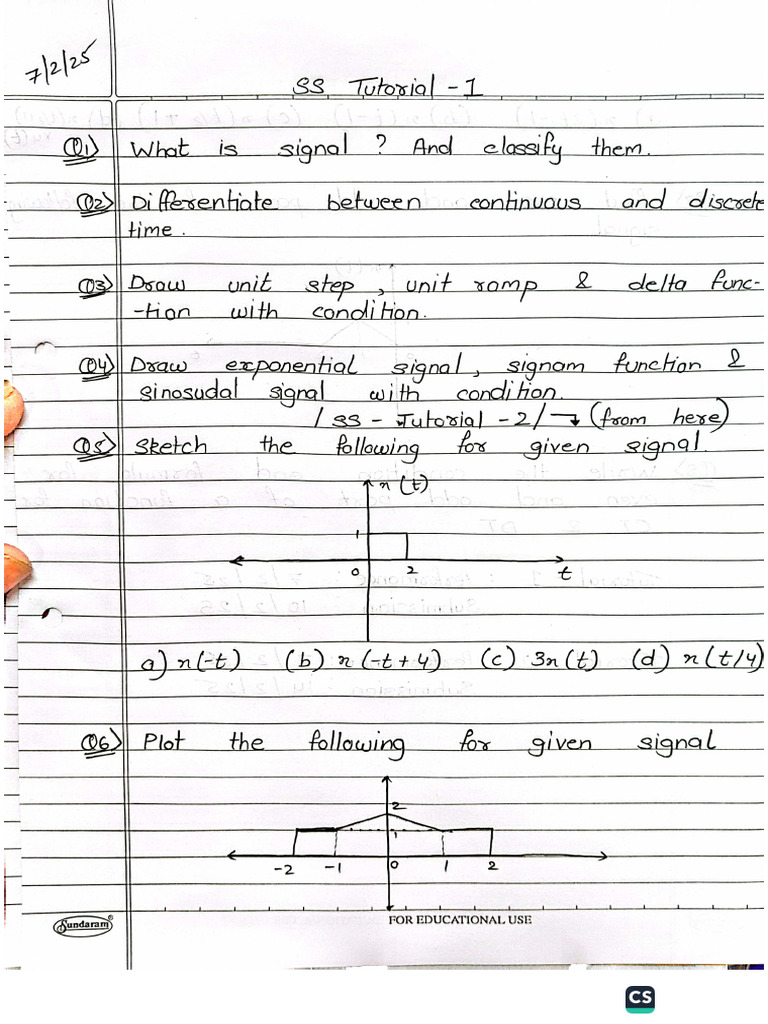 7/2/25
SS Tutorial - 1
Q1) What is signal ? And classify them.
Q2) Differentiate between continuous and discrete
time.
Q3) Draw unit step, unit ramp & delta func-
-tion with condition.
Q4) Draw exponential signal, signam function &
sinosudal signal with condition.
/ SS - Tutorial - 2 / → (from here)
Q5) Sketch the following for given signal.
x(t)
1
0 2 t
a) x(-t) (b) x(-t+4) (c) 3x(t) (d) x(t/4)
Q6) Plot the following for given signal
2
1
-2 -1 0 1 2
Sundaram®
FOR EDUCATIONAL USE
CS